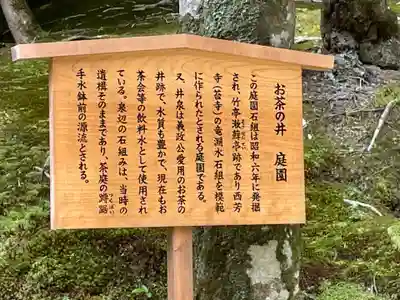 お茶の井　庭園
この庭園石組は昭和六年に発掘
され、竹亭漱蘚亭跡であり西芳
寺（苔寺）の竜淵水石組を模範
に作られたとされる庭園である。
又、井泉は義政公愛用のお茶の
井跡で、水質も豊かで、現在もお
茶会等の飲料水として使用され
ている。泉辺の石組みは、当時の
遺構そのままであり、茶庭の蹲踞
手水鉢前の源流とされる。